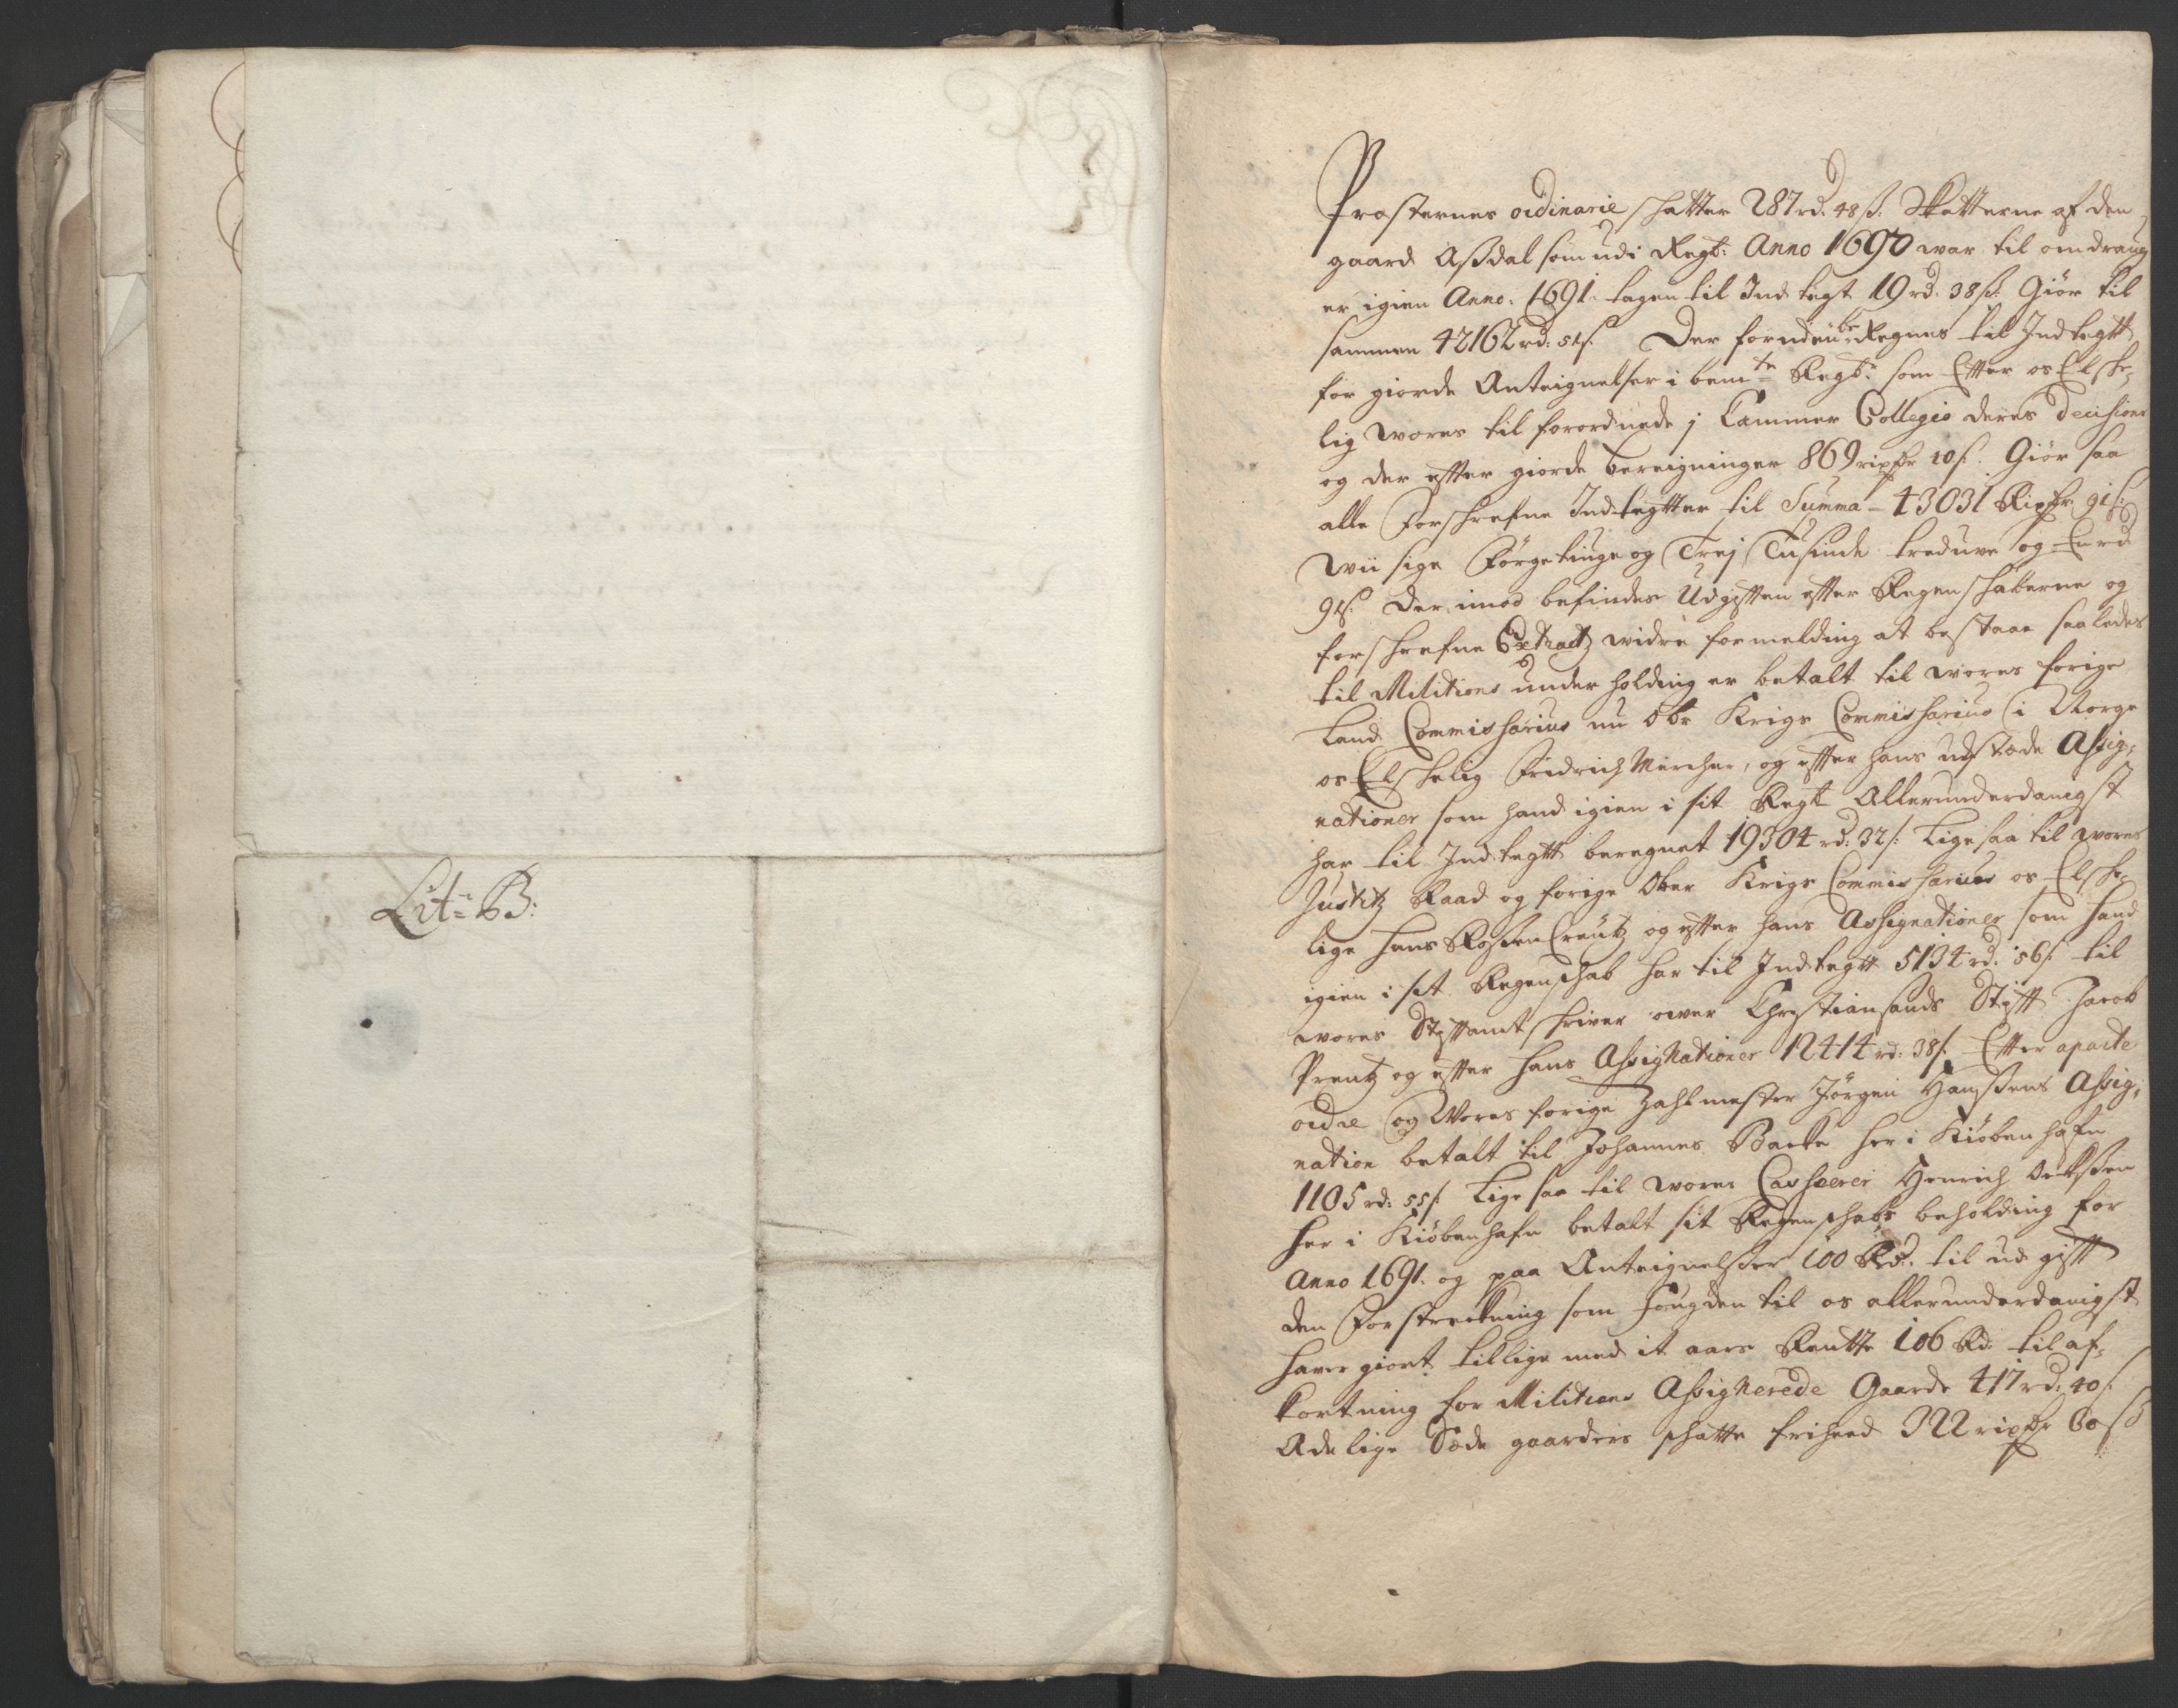 Lit: B:
Præsternes ordinarie schatter 287 rd. 48 ß. Skatterne af den
gaard Aßdal som udi Regb: Anno 1690 war til omdraug
er igien Anno: 1691 tagen til Indtegt 19 rd. 38 ß. Giör til
sammen 42162 rd: 51 ß. Der foruden Regnes til Indtegtt
for giorde Anteignelser i bemte Regb: som Efter os Elske-
lig wores til forordnede j Cammer Collegio deres decisioner
og der efter giorde bereigninger 869 ripdr 40 ß. Giör saa
alle Forschrefne Indtegtter til Summa - 43031 Ripdr 91 ß:
Wii sige Förgetiuge og Trej Tusinde tredive og En rd
91 ß. Der imod befindes Udgifften efter Regenschaberne og
forschrefne Extractz widre formelding at bestaae saaledes
til Militiens underholding er betalt til wores forige
Land Commissarius nu Obr Krigs Commissarius i Norge
os Elschelig Fridrich Mercher, og efter hans udstæde Assig-
nationer som hand igien i sit Regb Allerunderdanigst
har til Indtegtt beregnet 19304 rd: 32 ß. Ligesaa til wores
Justitz Raad og forige Ober Krigs Commissarius os Elske-
lige Hans RosenCreutz og efter hans Assignationer som hand
igien i sit Regenschab har til Indtegtt 5134 rd. 56 ß. til
wores Stifftamtschriver ower Christiansands Stifft Jacob
Prentz og efter hans Assignationer 12414 rd: 38 ß. Efter aparte
ordre og Wores forige Zahlmester Jörgen Hanssens Assig-
nation betalt til Johannes Barth her i Kiöbenhafn
1105 rd: 55 ß. Ligesaa til wores Casserer Henrich
her i Kiöbenhafn betalt sit Regenschabs beholding for
Anno 1691. og paa Anteignelser 100 Rd. til udgifft
den Forstreckning som fougden til os allerunderdanigst
hawer giort tillige med it aars Rentte 106 Rd. til af-
kortning for Militiens Assignerede Gaarde 417 rd. 40 ß.
Adelige Sæde gaarders schatte friheed 322 ripdr 60 ß